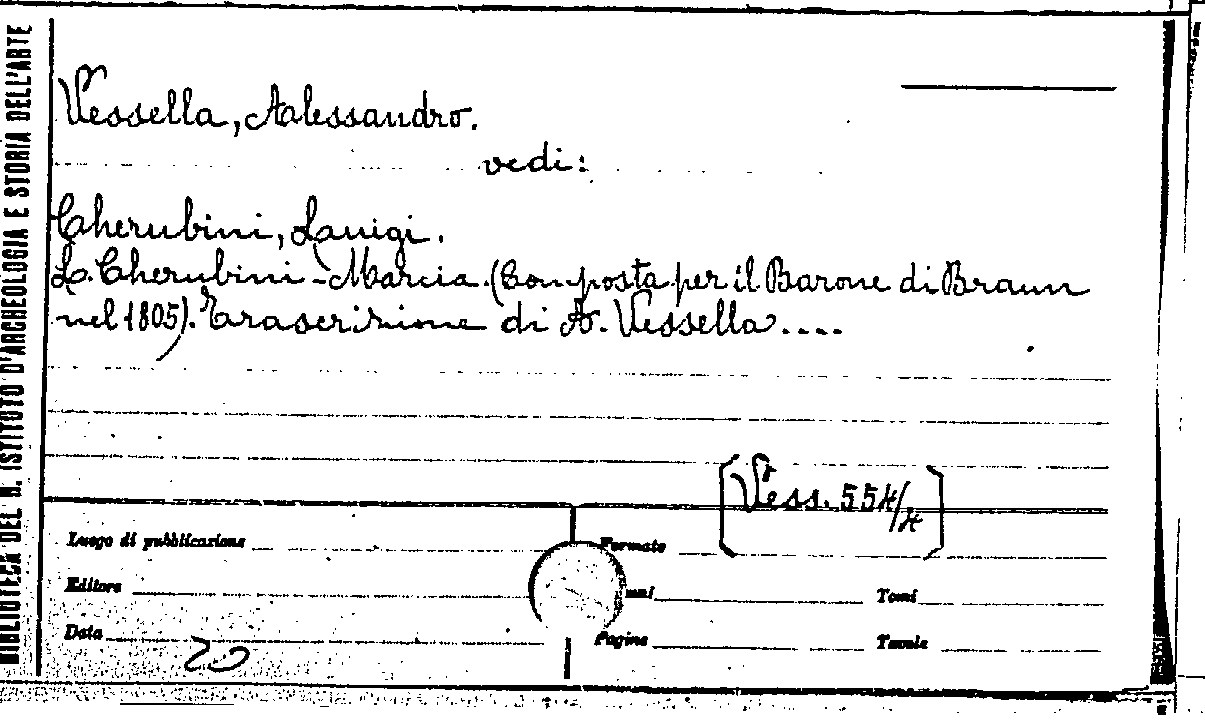 BIBLIOTECA DEL R. ISTITUTO D'ARCHEOLOGIA E STORIA DELL'ARTE
Vessella, Alessandro.
vedi:
Cherubini, Luigi.
L. Cherubini - Marcia. (Composta per il Barone di Braun
nel 1805). Trascrizione di A. Vessella....
[Vess. 554/4]
Luogo di pubblicazione
Formato
Editore
Tomi
Data
Pagine
Tavole
20